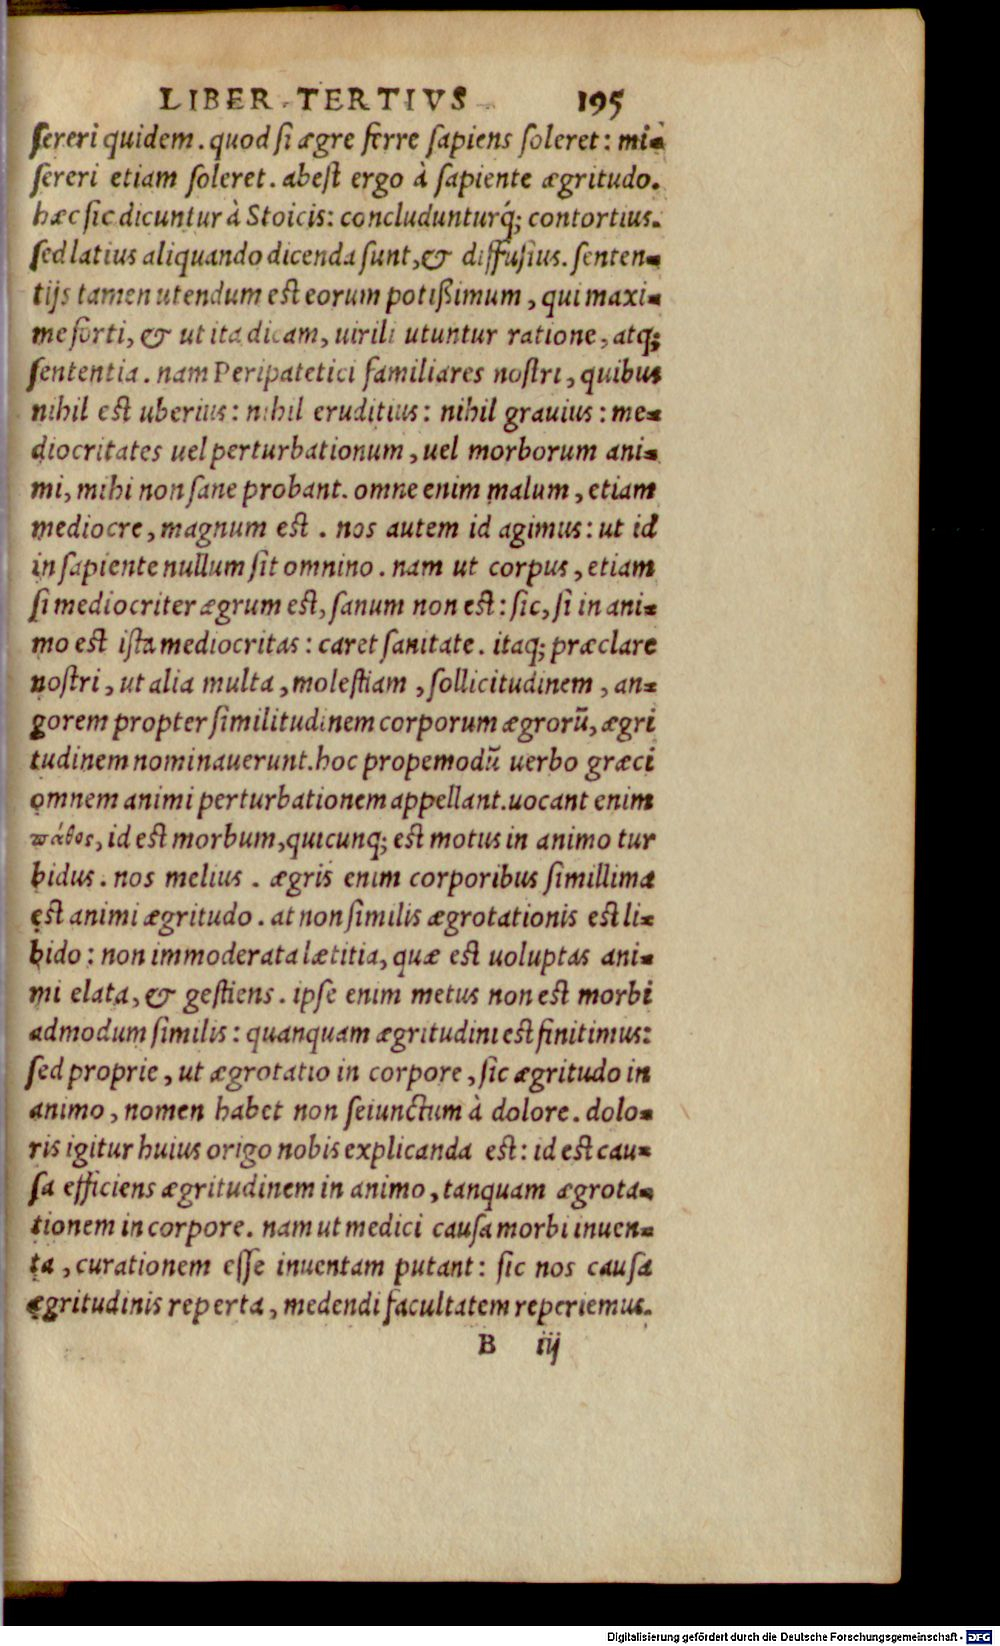 LIBER TERTIVS 195
ſereri quidem. quod ſi ægre ferre ſapiens ſoleret: mi-
ſereri etiam ſoleret. abeſt ergo à ſapiente ægritudo.
hæc ſic dicuntur à Stoicis: concluduntuŕq; contortius.
ſed latius aliquando dicenda ſunt, & diffuſius. ſenten-
tijs tamen utendum eſt eorum potißimum, qui maxi-
me forti, & ut ita dicam, uirili utuntur ratione, atq;
ſententia. nam Peripatetici familiares noſtri, quibus
nihil eſt uberius: nihil eruditius: nihil grauius: me-
diocritates uel perturbationum, uel morborum ani-
mi, mihi non ſane probant. omne enim malum, etiam
mediocre, magnum eſt. nos autem id agimus: ut id
in ſapiente nullum ſit omnino. nam ut corpus, etiam
ſi mediocriter ægrum eſt, ſanum non eſt: ſic, ſi in ani-
mo eſt iſta mediocritas: caret ſanitate. itaq; præclare
noſtri, ut alia multa, moleſtiam, ſollicitudinem, an-
gorem propter ſimilitudinem corporum ægrorū, ægri
tudinem nominauerunt. hoc propemodū uerbo græci
omnem animi perturbationem appellant. uocant enim
πάθος, id eſt morbum, quicunq; eſt motus in animo tur
bidus. nos melius. ægris enim corporibus ſimillima
eſt animi ægritudo. at non ſimilis ægrotationis eſt li-
bido: non immoderata lætitia, quæ eſt uoluptas ani-
mi elata, & geſtiens. ipſe enim metus non eſt morbi
admodum ſimilis: quanquam ægritudini eſt finitimus:
ſed proprie, ut ægrotatio in corpore, ſic ægritudo in
animo, nomen habet non ſeiunctum à dolore. dolo-
ris igitur huius origo nobis explicanda eſt: id eſt cau-
ſa efficiens ægritudinem in animo, tanquam ægrota-
tionem in corpore. nam ut medici cauſa morbi inuen-
ta, curationem eſſe inuentam putant: ſic nos cauſa
ægritudinis reperta, medendi facultatem reperiemus.
B iij
Digitalisierung gefördert durch die Deutsche Forschungsgemeinschaft - DFG